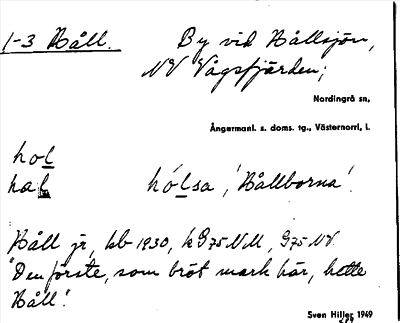 1-3 Håll. By vid Hållsjön,
NV Vågsfjärden;
Nordingrå sn,
Ångermanl. s. doms. tg., Västernorrl. l.
hol
hal hólsa, 'Hållborna'.
Håll jr, kb 1930, k G75 NM, G75 NV.
"Den förste, som bröt mark här, hette
Håll".
Sven Hiller 1949